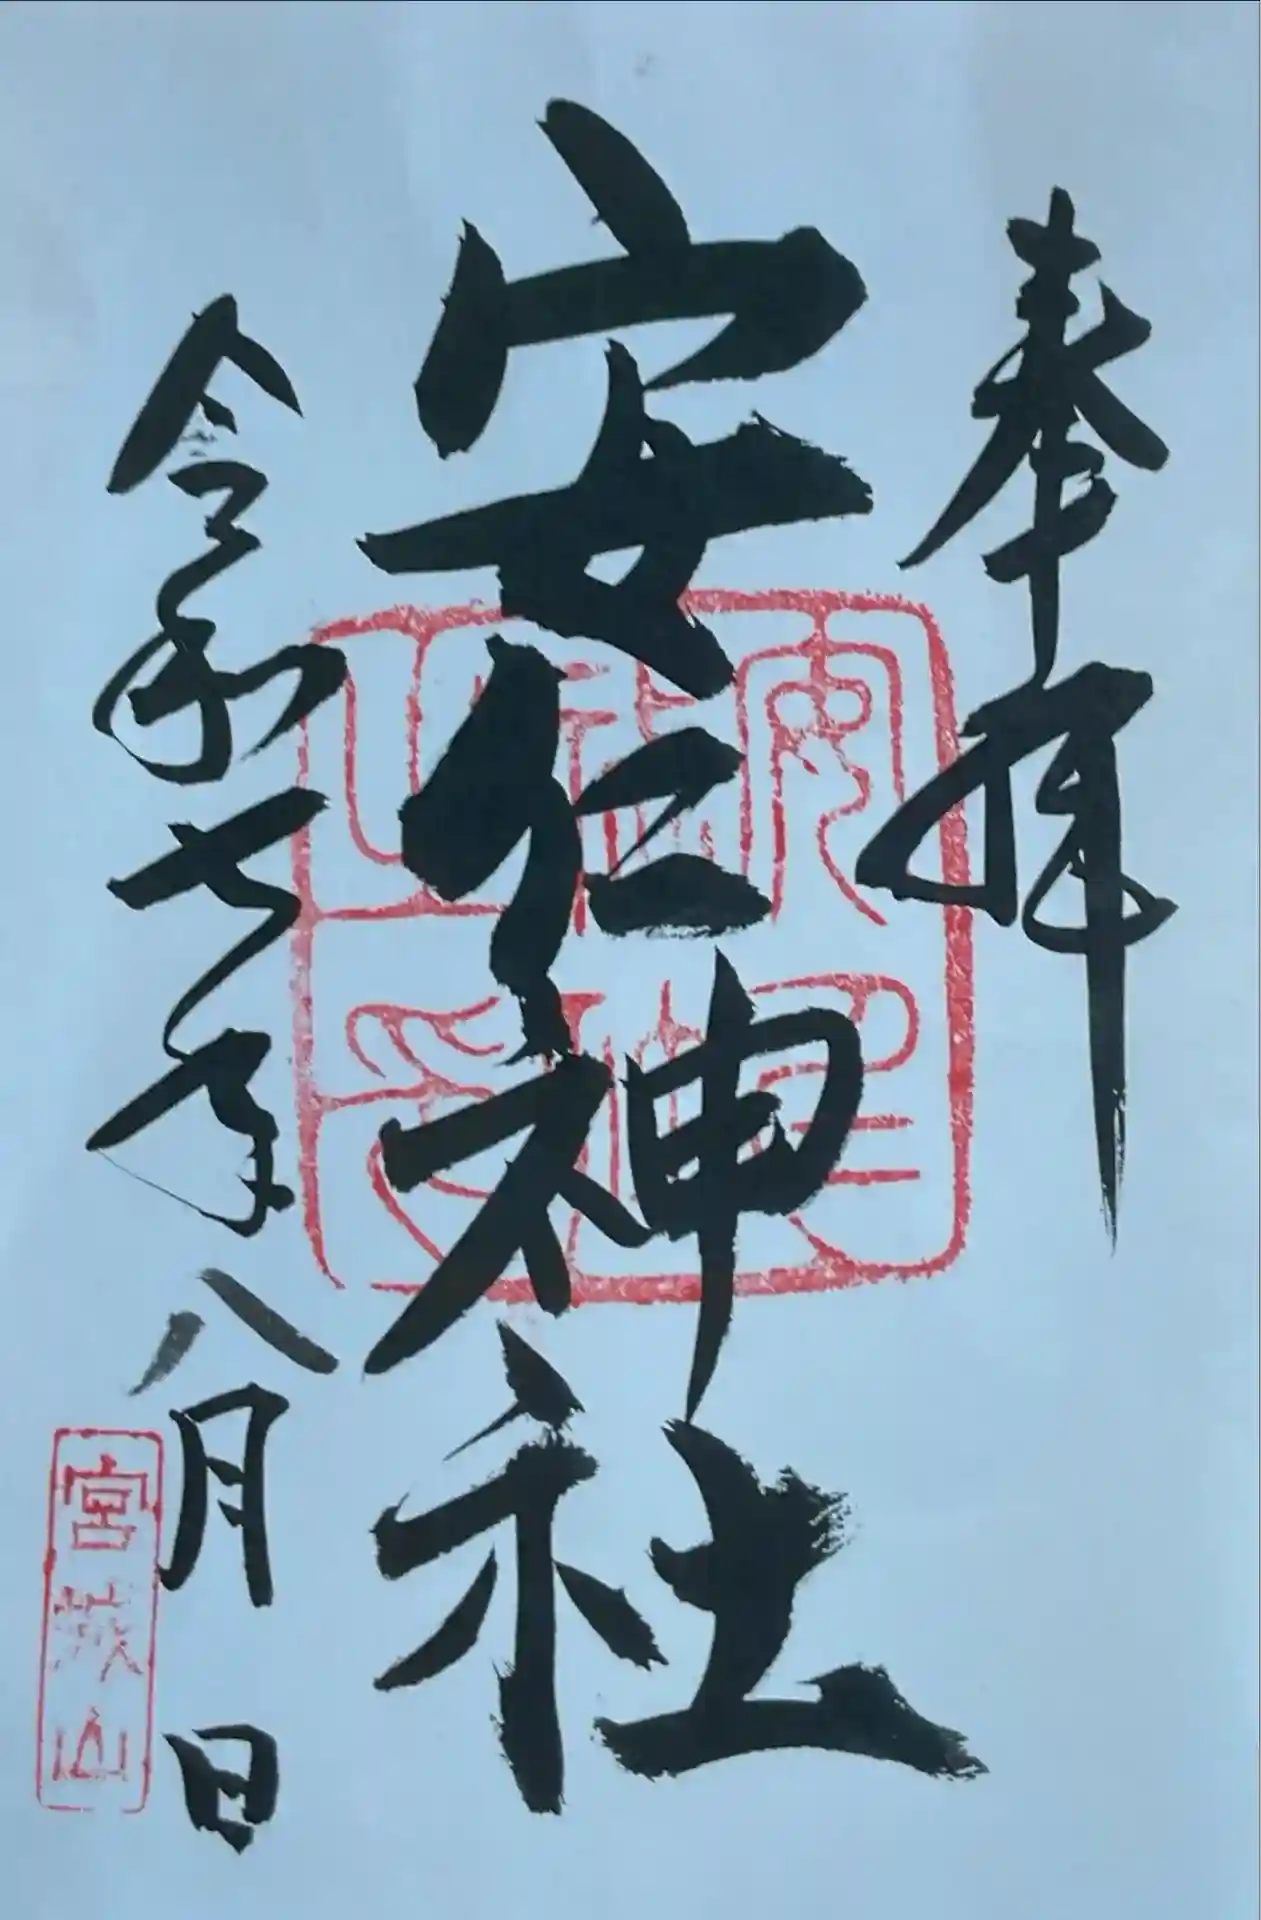 奉拝
安仁神社
令和七年八月日
宮城山